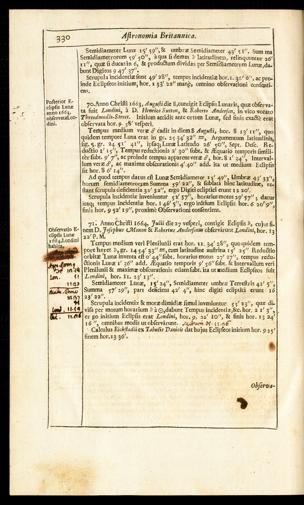 330 Astronomia Britannica.
Semidiameter Lunæ 15' 59", & umbræ Semidiameter 43' 51". Sum ma
Semidiametrorum 59' 50", à qua si demas latitudinem, relinquuntur 20'
11", quæ si ducas in 6, & productum dividas per Semidiametrum Lunæ, da-
bunt Digitos
Scrupula incidentiæ sunt 49' 28", tempus incidentiæ hor. ac pro-
inde Eclipseos initium, hor. 1 33' 22" manè, omnino observationi consequi-
taneum.
Posterior E-
clipsis Lunæ
anno 1663.
observata.
70. Anno Christi 1663, Augusti die 8 contigit Eclipsis Lunaris, quæ observa-
ta fuit Londini, à D. Henrico Sutton, & Roberto Anderson, in vico vocato
Threadneedle-Street. Initium accidit ante ortum Lunæ, sed finis exactè erat
observata hor. 9. vesperi.
Tempus medium veræ ☍ cadit in diem 8 Augusti, hor. 8 19' 11", quo
quidem tempore Luna erat in gr. Argumentum latitudinis,
sig. 5. gr. 24 51' 41", ipsaq; Lunæ Latitudo Sept. Desc. Re-
ductio 2' 15", Tempus reductionis 2' 30" subt. & Æquatio temporis
subt. 9' 7", ac proinde tempus apparens veræ ☍, hor. 8 1' 24", Interval-
lum veræ ☍, ac maximæ observationis 4' 40" add. ita ut medium Eclipsis
sit hor. 8 6' 14".
Ad quod tempus datur Semidiameter 15' 40", Umbræ 43' 32",
horum semidiametrorum Summa 59' 22", & sublatâ hinc latitudine, re-
stant scrupula deficientia 31' 32", ergo Digiti ecliptici erunt 12 20'.
Scrupula incidentiæ inveniuntur 52' 57", horarius motus 29' 57"; datur
unq; tempus incidentiæ hor. 1 46' 5", ergo initium Eclipsis hor. 6 20' 9",
finis hor. 9 52' 19", proximè Observationi consentiens.
Observatio E-
clipsis Lunæ
1664. Londini
habita.
71. Anno Christi 1664, Julii die 27 vesperi, contigit Eclipsis ☽, cujus fi-
nem D. Josephus Moxon & Robertus Anderson observârunt Londini, hor. 13
22' P. M.
Tempus medium veri Plenilunii erat hor. 11. 34' 28", quo quidem tem-
pore hæret ☽, gr. 14 54' 33", cum latitudine austrina 15' 25" Reductio
orbitæ Lunæ inventa est 0' 44" subt. horarius motus 27' 27", tempus redu-
ctionis Lunæ 1' 36" add. Æquatio temporis 9' 50" subt. & Intervallum veri
Plenilunii & maximæ obscurationis etiam subt. ita ut medium Eclipseos fuit
Londini, hor. 11. 23' 13".
Semidiameter Lunæ, 15' 24", Semidiameter umbræ Terrestris 42' 5",
Summa 57' 29", pars deficiens 42' 4", hinc digiti ecliptici erunt 16
23' 22".
Scrupula incidentiæ & moræ dimidiæ simul inveniuntur 55' 23", quæ di-
visa per motum horarium ☽ à ☉, dabunt Tempus incidentiæ, &c. hor. 2 1' 3",
ergo initium Eclipsis erat Londini, hor. 9. 22' 10", & finis hor. 13 24'
16", omnibus modis ut observârunt.
Calculus Eichstadii ex Tabulis Danicis dat hujus Eclipseos initium hor. 9 25'
finem hor. 13 30'.
Observa-